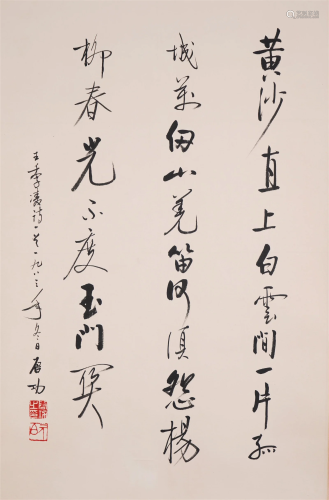 黄沙直上白雲間一片孤
城萬仞山羌笛何須怨楊
柳春光不度玉門関
王季淩詩一首一九八三年冬日启功